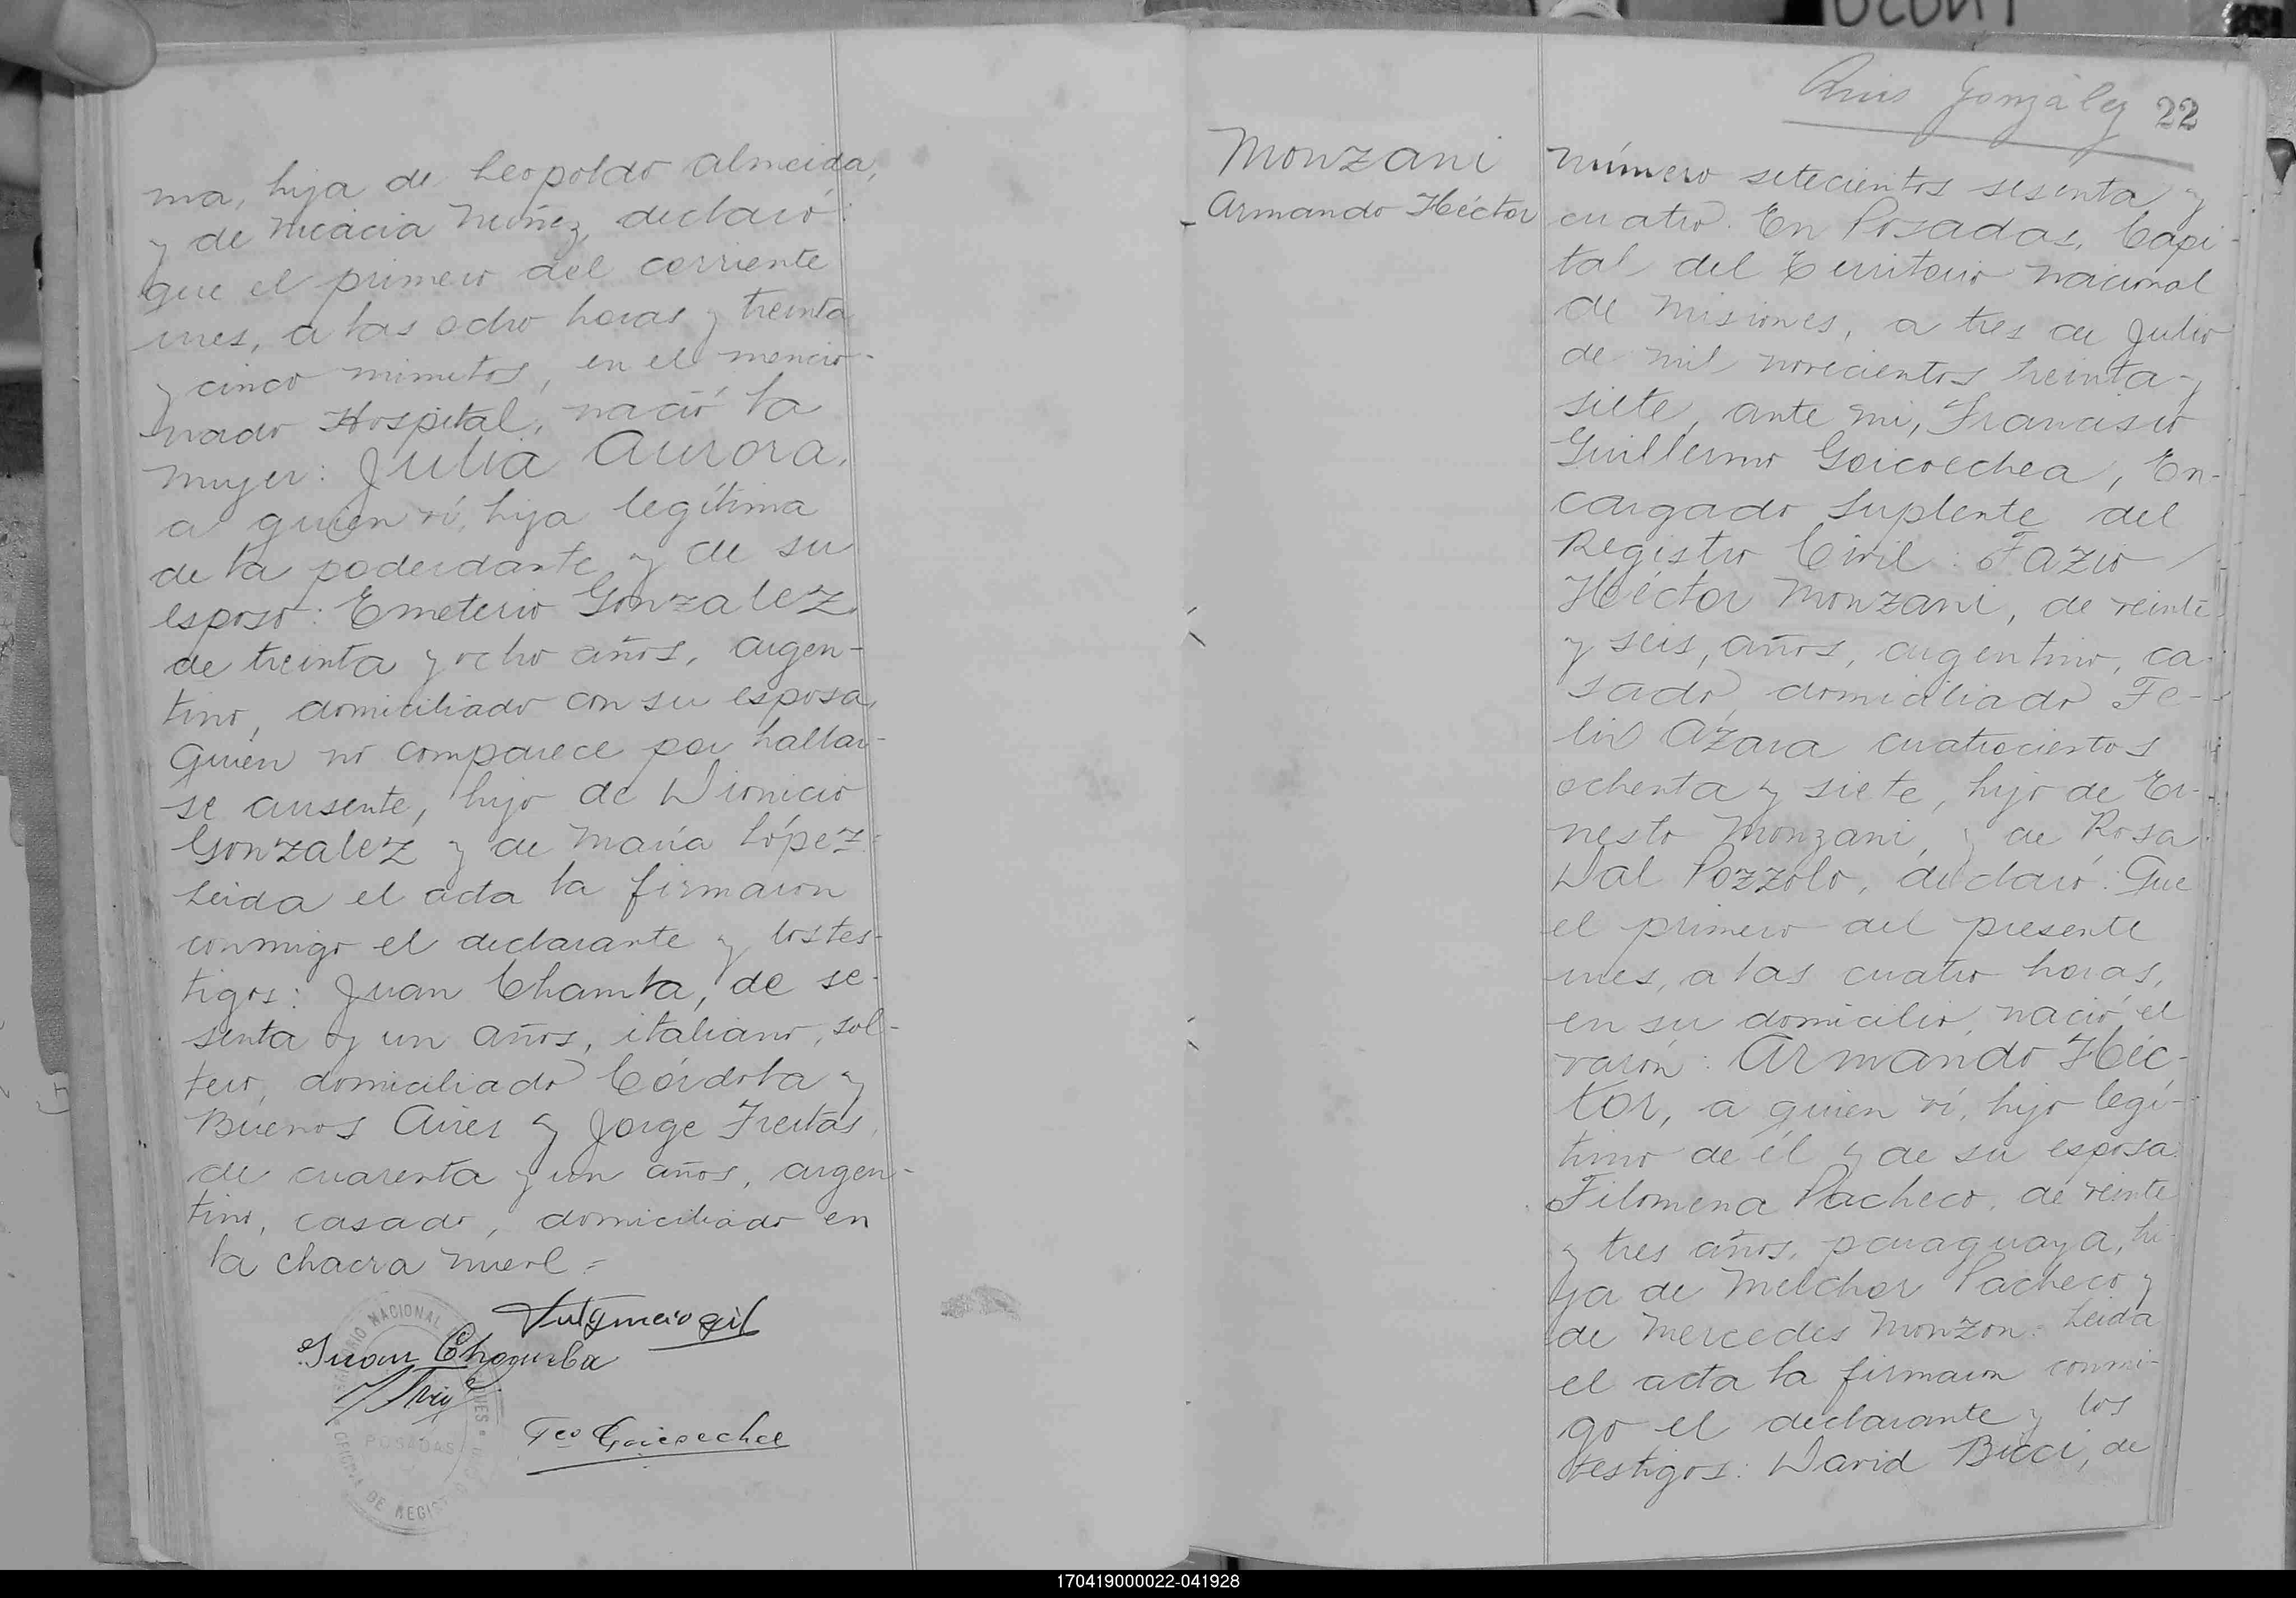 ma, hija de Leopoldo Almeida,
y de Nicacia Nuñez, declaró:
que el primero del corriente
mes, a las ocho horas y treinta
y cinco minutos, en el mencio-
nado Hospital, nació la
mujer: Julia Aurora,
a quien ví, hija legítima
de la poderdante y de su
esposo: Emeterio Gonzalez,
de treinta y ocho años, argen-
tino, domiciliado con su esposa,
quien no comparece por hallar-
se ausente, hijo de Dionicio
Gonzalez y de María López=
Leida el acta la firmaron
conmigo el declarante y los tes-
tigos: Juan Chamba, de se-
senta y un años, italiano, sol-
tero, domiciliado Córdoba y
Buenos Aires y Jorge Freitas,
de cuarenta y un años, argen-
tino, casado, domiciliado en
la chacra nueve=
Juan Chamba
Fco Goicoechea
NACIONAL
POSADAS
OFICINA DE REGISTRO
Luis González 22
Monzani
Armando Héctor
Número setecientos sesenta y
cuatro. En Posadas, Capi-
tal del Territorio Nacional
de Misiones, a tres de Julio
de mil novecientos treinta y
siete, ante mi, Francisco
Guillermo Goicoechea, En-
cargado Suplente del
Registro Civil: Fazio
Héctor Monzani, de veinte
y seis, años, argentino, ca-
sado, domiciliado Fe-
lix Azara cuatrocientos
ochenta y siete, hijo de Er-
nesto Monzani, y de Rosa
Dal Pozzolo, declaró: Que
el primero del presente
mes, a las cuatro horas,
en su domicilio, nació el
varón: Armando Héc-
tor, a quien ví, hijo legí-
timo de él y de su esposa:
Filomena Pacheco, de veinte
y tres años, paraguaya, hi-
ja de Melchor Pacheco y
de Mercedes Monzon= Leida
el acta la firmaron conmi-
go el declarante y los
testigos: David Bicci, de
170419000022-041928